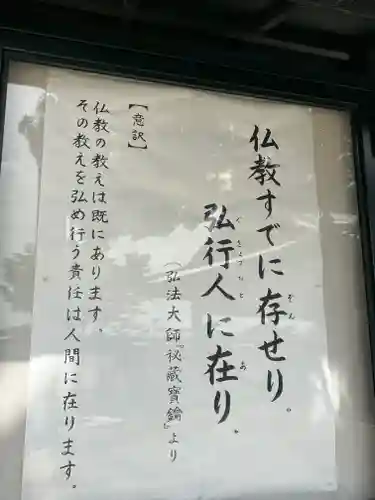 仏教すでに存せり。
弘行人に在り。
(弘法大師『祕蔵寶鑰』より
【意訳】
仏教の教えは既にあります。
その教えを弘め行う責任は人間に在ります。